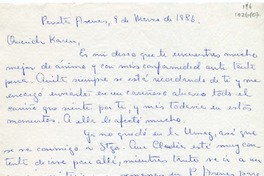 Punta Arenas, 9 de Marzo de 1986.
Querida Karen,
Es mi deseo que te encuentres mucho
mejor de ánimo y con más conformidad ante tanta
pena. Anita siempre se está acordando de ti y me
encargó enviarte en un cariñoso abrazo todo el
cariño que siente por ti, y más todavía en estos
momentos. A ella le afectó mucho
Ya no quedó en la Umag, así que
se va conmigo a Stgo. Que Claudia esté
de irse para allá, mientras tanto se irá a un
en P. Arenas para